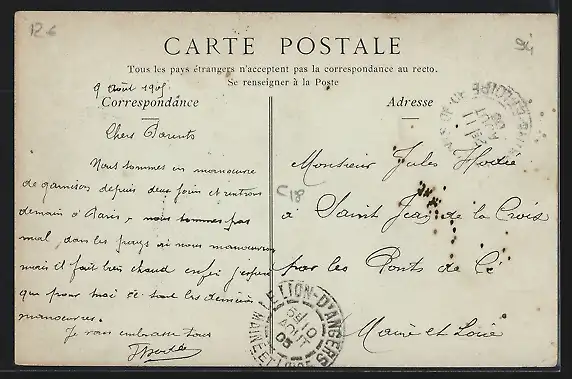 126
94
CARTE POSTALE
Tous les pays étrangers n'acceptent pas la correspondance au recto.
Se renseigner à la Poste
9 Août 1905
Correspondance
Chers Parents
Nous sommes en manoeuvre
de garnison depuis deux jours et rentrons
demain à Paris, nous sommes pas
mal, dans les pays où nous manoeuvrons
mais il fait bien chaud enfin j'espère
que pour moi se sont les dernières
manoeuvres.
Je vous embrasse tous
Adresse
Monsieur Jules
à Saint Jean de la Croix
par les Ponts de Cé
Maine et Loire
C18
LE LION-D'ANGERS
10
AOUT
05
MAINE-ET-LOIRE